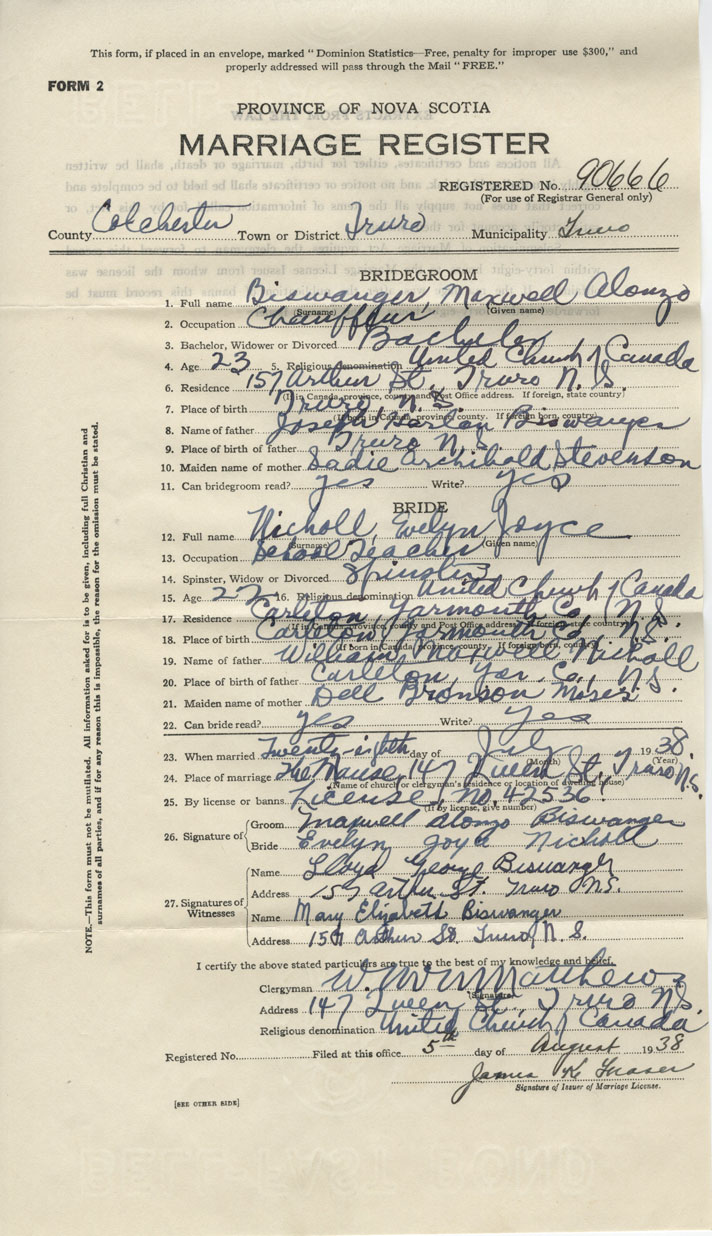 This form, if placed in an envelope, marked "Dominion Statistics—Free, penalty for improper use $300," and
properly addressed will pass through the Mail "FREE."
FORM 2
PROVINCE OF NOVA SCOTIA
MARRIAGE REGISTER
REGISTERED No. 90666
(For use of Registrar General only)
County Colchester Town or District Truro Municipality Truro
BRIDEGROOM
1. Full name Biswanger, Maxwell Alonzo
(Surname) (Given name)
2. Occupation Chauffeur
3. Bachelor, Widower or Divorced Bachelor
4. Age 23 5. Religious denomination United Church of Canada
6. Residence 157 Arthur St., Truro N.S.
(If in Canada, province, county and Post Office address. If foreign, state country)
7. Place of birth Truro, N.S.
(If born in Canada, province, county. If foreign born, country)
8. Name of father Joseph Harlan Biswanger
9. Place of birth of father Truro N.S.
10. Maiden name of mother Sadie Archibald Stevenson
11. Can bridegroom read? yes Write? yes
BRIDE
12. Full name Nicholl, Evelyn Joyce
(Surname) (Given name)
13. Occupation School Teacher
14. Spinster, Widow or Divorced Spinster
15. Age 22 16. Religious denomination United Church of Canada
17. Residence Carleton, Yarmouth Co., N.S.
(If in Canada, province, county and Post Office address. If foreign country)
18. Place of birth Carleton, Yarmouth Co., N.S.
(If born in Canada, province, county. If foreign born, country)
19. Name of father William Maxwell Nicholl
20. Place of birth of father Carleton, Yar. Co., N.S.
21. Maiden name of mother Dell Bronson Moses
22. Can bride read? yes Write? yes
23. When married Twenty-eighth day of July 1938
(Month) (Year)
24. Place of marriage The Manse, 147 Queen St., Truro N.S.
(Name of church or clergyman's residence or location of dwelling house)
25. By license or banns License, No. 42536.
(If by license, give number)
26. Signature of
Groom Maxwell Alonzo Biswanger
Bride Evelyn Joyce Nicholl
27. Signatures of Witnesses
Name Lloyd George Biswanger
Address 157 Arthur St. Truro N.S.
Name Mary Elizabeth Biswanger
Address 157 Arthur St. Truro, N.S.
I certify the above stated particulars are true to the best of my knowledge and belief.
Clergyman W. Matthews
(Signature)
Address 147 Queen St., Truro N.S.
Religious denomination United Church of Canada
Registered No. Filed at this office 5th day of August 1938
James K Fraser
Signature of Issuer of Marriage License.
[SEE OTHER SIDE]
NOTE.—This form must not be mutilated. All information asked for is to be given, including full Christian and
surnames of all parties, and if for any reason this is impossible, the reason for the omission must be stated.